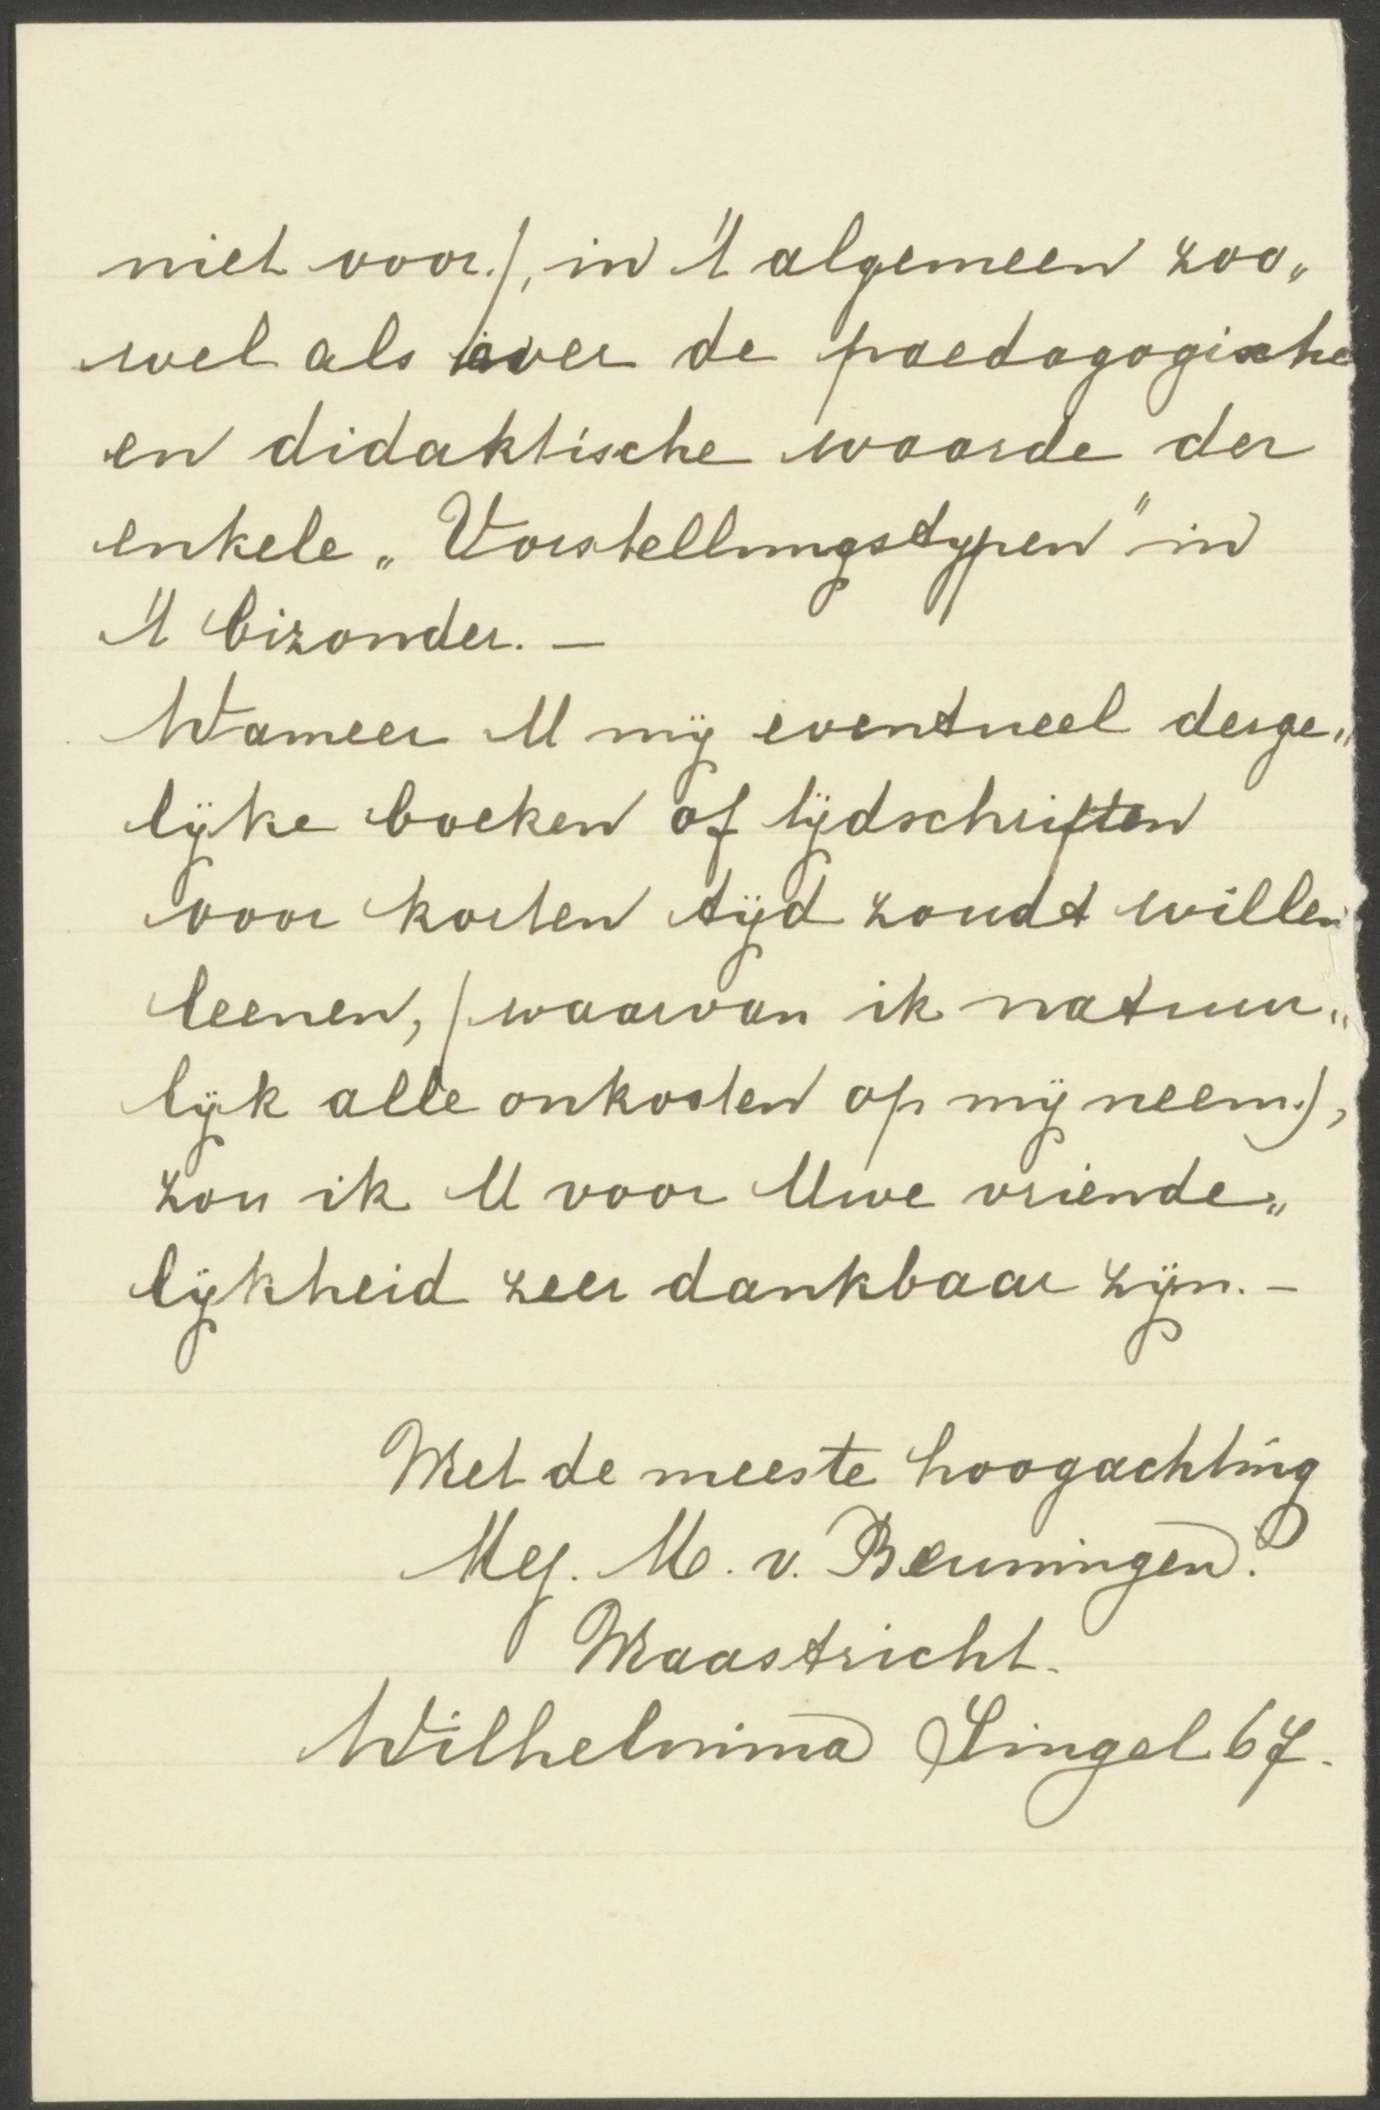 niet voor.), in 't algemeen zoo„
wel als over de paedagogische
en didaktische waarde der
enkele „Vorstellungstypen" in
't bizonder. —
Wanneer U mij eventueel derge„
lijke boeken of tijdschriften
voor korten tijd zoudt willen
leenen, (waarvan ik natuur„
lijk alle onkosten op mij neem.),
zou ik U voor Uwe vriende„
lijkheid zeer dankbaar zijn. —
Met de meeste hoogachting
Mej. M. v. Beuningen.
Maastricht.
Wilhelmina Singel 67.